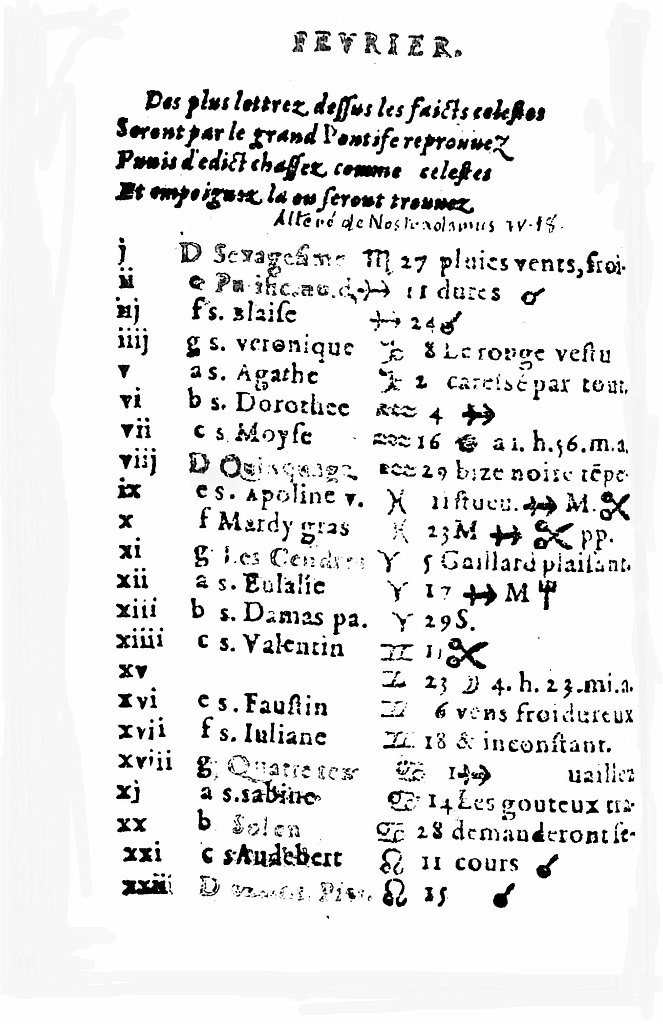 FEVRIER.
Des plus lottrez dessus les faicts celestes
Seront par le grand Pontife reprouuez
Punis d'edict chassez comme celestes
Et empoignez la ou seront trouuez
Altéré de Nostradamus IV·18·
j D Sexagesime ♏ 27 pluies vents, froi-
ii e ♐ 11 dures ♂
iij f s. Blaise ♐ 24
iiij g s. veronique ♑ 8 Le rouge vestu
v a s. Agathe ♑ 2 careisé par tout.
vi b s. Dorothee ♒ 4
vii c s Moyse ♒ 16 a i. h. 56. m. a.
viij D Quinquage ♒ 29 bize noire tẽpe-
ix e s. Apoline v. ♓ 11 M.
x f Mardy gras ♓ 23 M pp.
xi g Les Cendres ♈ 5 Gaillard plaisant.
xii a s. Eulalie ♈ 17 M
xiii b s. Damas pa. ♈ 29 S.
xiiii c s. Valentin ♊ 11
xv ♊ 23 4. h. 23. mi. a.
xvi e s. Faustin ♊ 6 vens froidureux
xvii f s. Iuliane ♊ 18 & inconstant.
xviii g Quatre tex ♋ 1 uaillez
xj a s. sabine ♋ 14 Les gouteux tra-
xx b Solen ♋ 28 demanderont se-
xxi c s Audebert ♌ 11 cours
xxii D ♌ 15